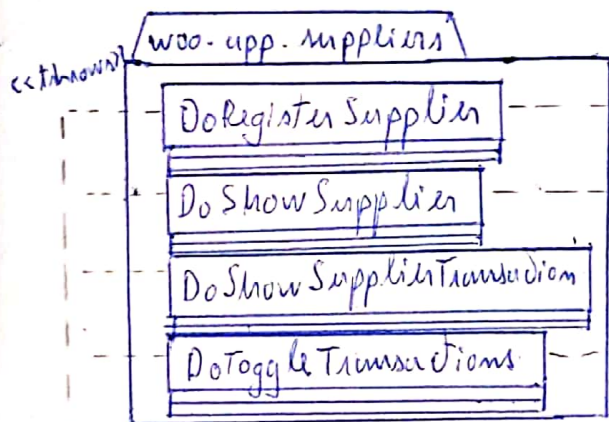 woo.app.suppliers
<<throws>>
DoRegisterSupplier
DoShowSupplier
DoShowSupplierTransaction
DoToggleTransactions